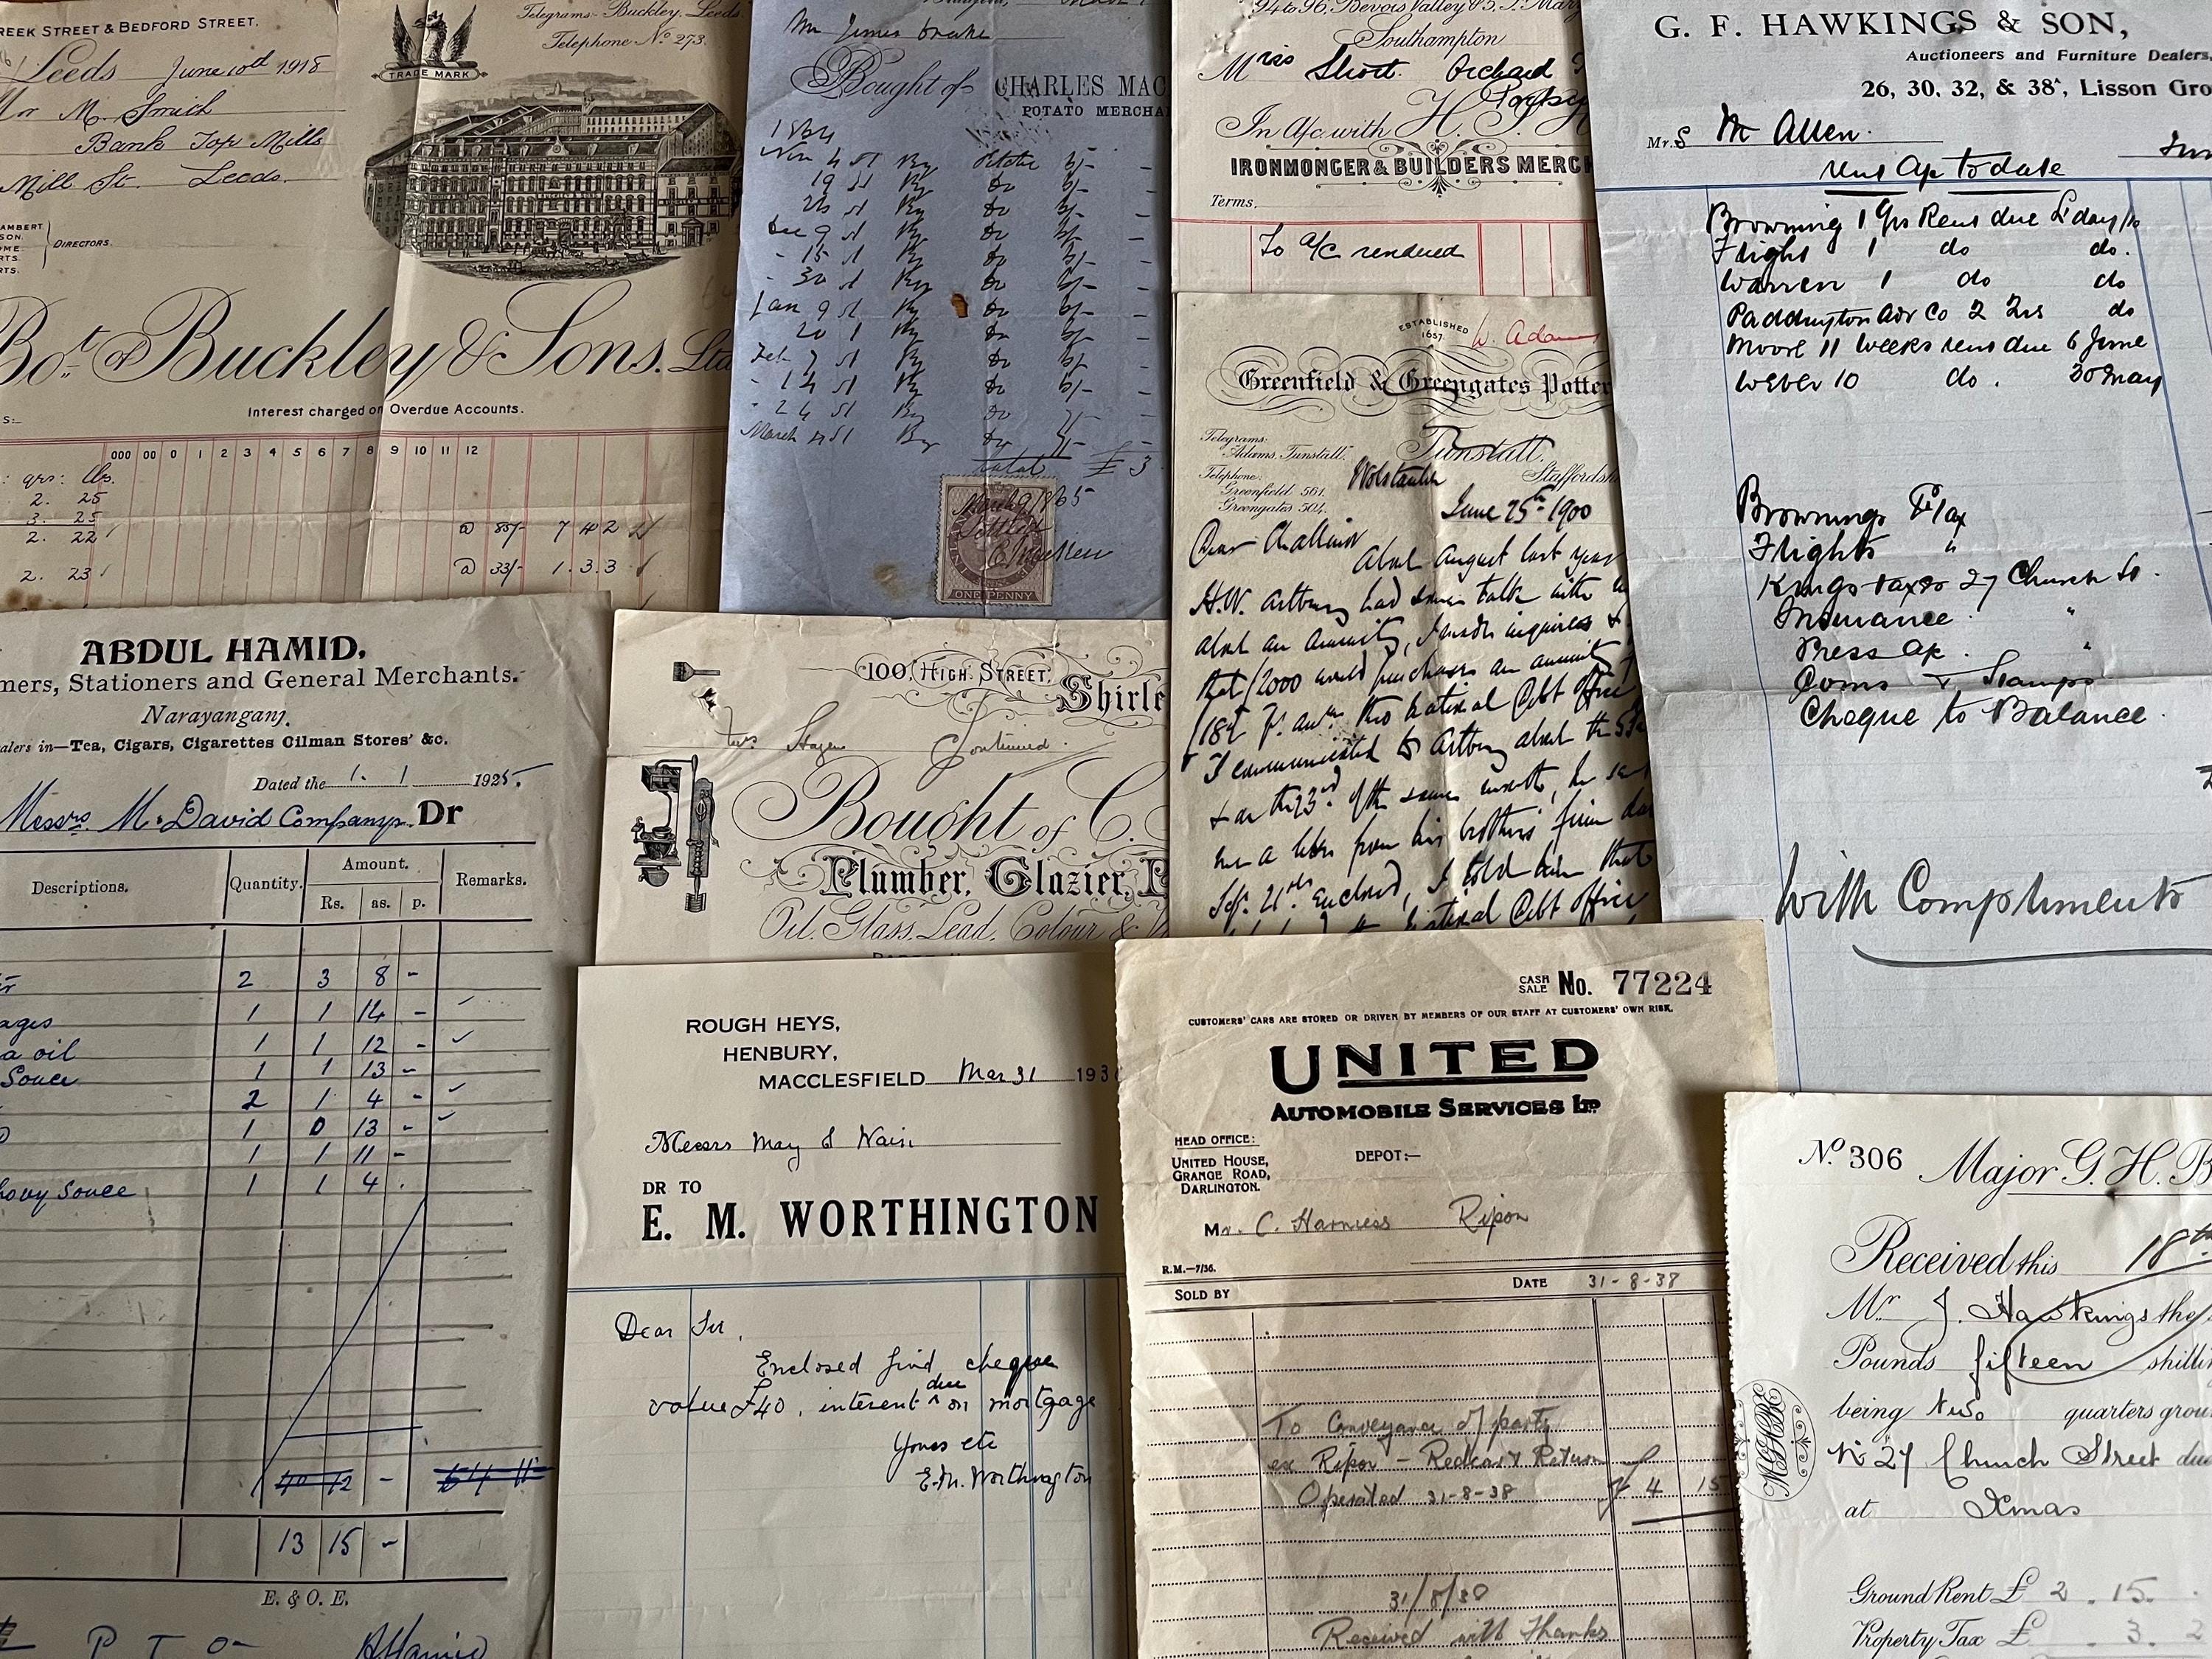 REEK STREET & BEDFORD STREET.
Leeds June 10th 1918
Mr M. Smith
Bank Top Mills
Mill St. Leeds.
AMBERT
SON.
OME.
RTS.
RTS.
DIRECTORS.
TRADE MARK
Telegrams:- Buckley, Leeds.
Telephone No 273.
Bot of Buckley & Sons. Ltd
Interest charged on Overdue Accounts.
S:-
000 00 0 1 2 3 4 5 6 7 8 9 10 11 12
: qrs: lbs.
2. 25
3. 25
2. 22
@ 85/- 7 4 2
2. 23
@ 33/- 1. 3. 3
Mr James Drake
Bought of CHARLES MAC
POTATO MERCHA
1864
Nov 4
19
26
Dec 9
15
30
Jan 9
20
Feb 7
14
24
March 4
total £ 3
March 9 1865
Settled
ONE PENNY
94 to 96, Bevois Valley & 5, St Mary
Southampton
Miss Short. Orchard
In A/c with H.
IRONMONGER & BUILDERS MERCH
Terms.
To a/c rendered
G. F. HAWKINGS & SON,
Auctioneers and Furniture Dealers,
26, 30, 32, & 38A, Lisson Gro
Mrs M Allen.
Browning 1 Qrs Rent due L day
Flight 1 do do.
Warren 1 do do
Paddington Adv Co 2 Qrs do
Moore 11 weeks rent due 6 June
Weber 10 do. 30 May
Brownings Tax
Flights "
Kings taxes 27 Church St.
Insurance "
Press a/c. "
Coms & Stamps
Cheque to Balance.
With Compliments
ESTABLISHED
1657.
W. Adams
Greenfield & Greengates Potter
Telegrams:
"Adams, Tunstall."
Telephone:
Greenfield 561.
Greengates 504.
Tunstall.
Wolstanton
Staffordsh
June 25th 1900
Dear Challinor
About August last year
H.W. had some talk with
about an annuity, I made inquiries &
that £2000 would purchase an annuity
£182 the National Debt Office
I communicated to about the
& on the 23rd of the same month, he
me a letter from his brothers' firm
Sep. 21st enclosed, I told him that
National Debt Office
ABDUL HAMID,
mers, Stationers and General Merchants.
Narayanganj.
alers in—Tea, Cigars, Cigarettes Oilman Stores' &c.
Dated the 1. 1 1925.
Messrs. M. David Company. Dr
Descriptions. Quantity. Amount. Remarks.
Rs. as. p.
2 3 8 -
ages 1 1 14 -
a oil 1 1 12 -
Souce 1 1 13 -
2 1 4 -
1 0 13 -
1 1 11 -
hovy Souce 1 1 4 .
13 15 -
E. & O. E.
P T O
AHamid
100, HIGH STREET,
Shirle
Continued.
Bought of C.
Plumber, Glazier, P
Oil, Glass, Lead, Colour &
ROUGH HEYS,
HENBURY,
MACCLESFIELD Mar 31 193
Messrs May & Wain
DR TO
E. M. WORTHINGTON
Dear Sir,
Enclosed find cheque
value £40, interest due on mortgage
Yours etc
E.M. Worthington
CASH SALE No. 77224
CUSTOMERS' CARS ARE STORED OR DRIVEN BY MEMBERS OF OUR STAFF AT CUSTOMERS' OWN RISK.
UNITED
AUTOMOBILE SERVICES LTD
HEAD OFFICE:
UNITED HOUSE,
GRANGE ROAD,
DARLINGTON.
DEPOT:—
Mr. C. Harness Ripon
R.M.—7/36.
DATE 31-8-38
SOLD BY
To Conveyance of party
ex Ripon - Redcar & Return
Operated 31-8-38 £ 4 15
31/8/38
Received with Thanks
No 306
Major G. H. B
Received this 18th
Mr J. Hawkings the
Pounds fifteen shilli
being two quarters grou
No 27 Church Street due
at Xmas
Ground Rent £ 2 . 15.
Property Tax £ . 3. 2